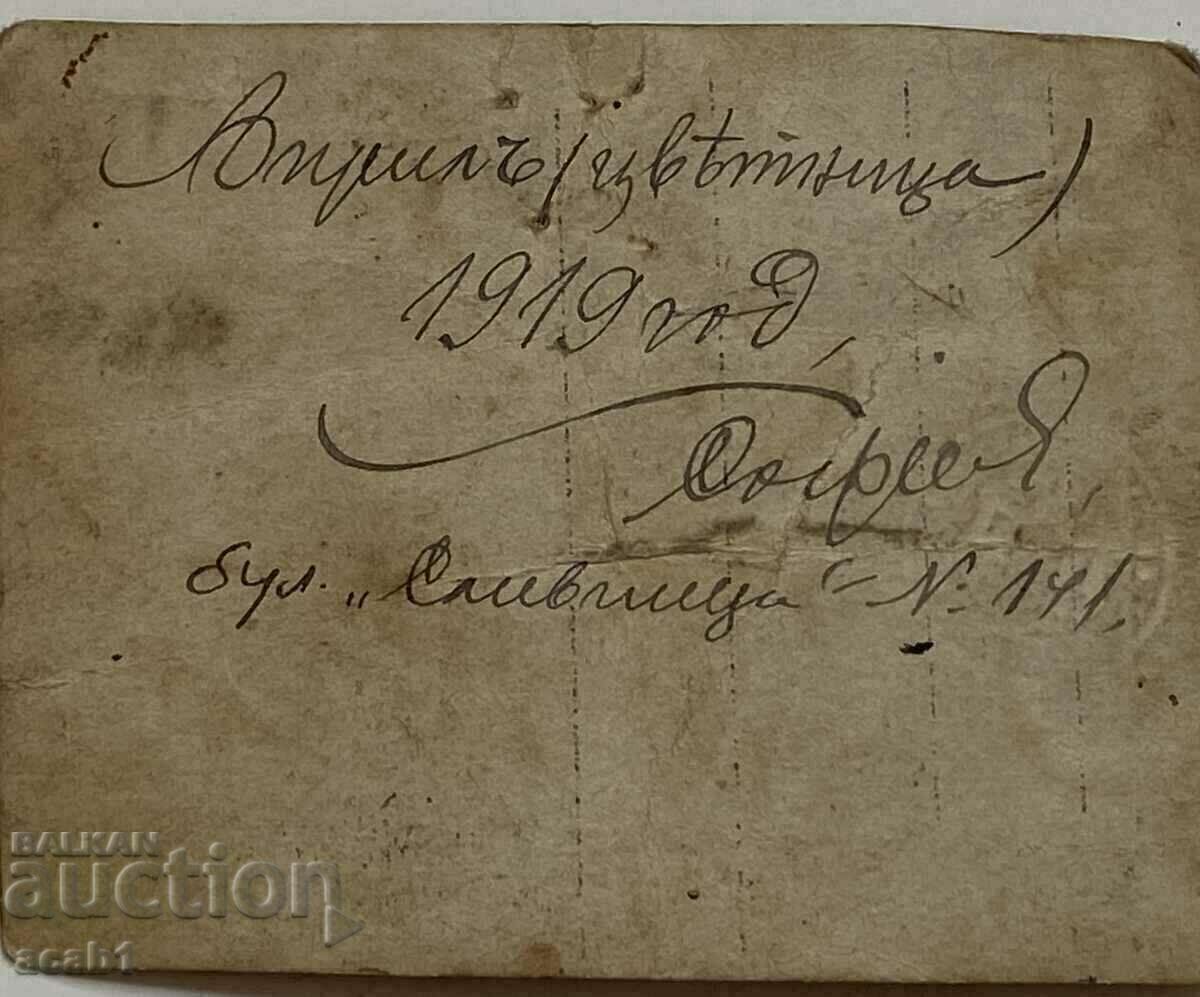 Априлъ (цвѣтница)
1919 год,
София,
бул. „Сливница“ № 141,
BALKAN
auction
acab1